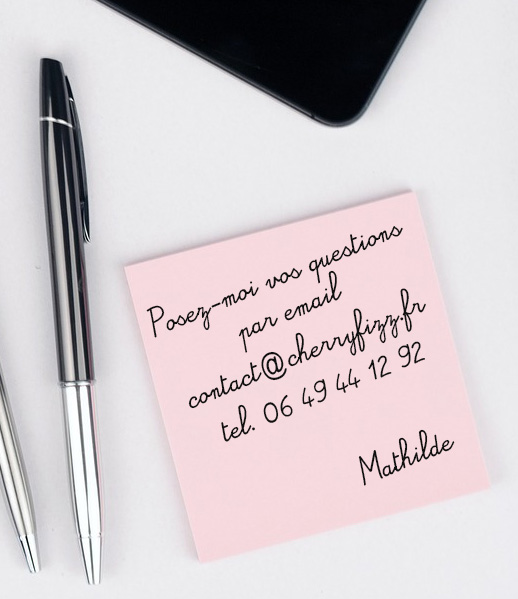 Posez-moi vos questions
par email
contact@cherryfizz.fr
tel. 06 49 44 12 92
Mathilde